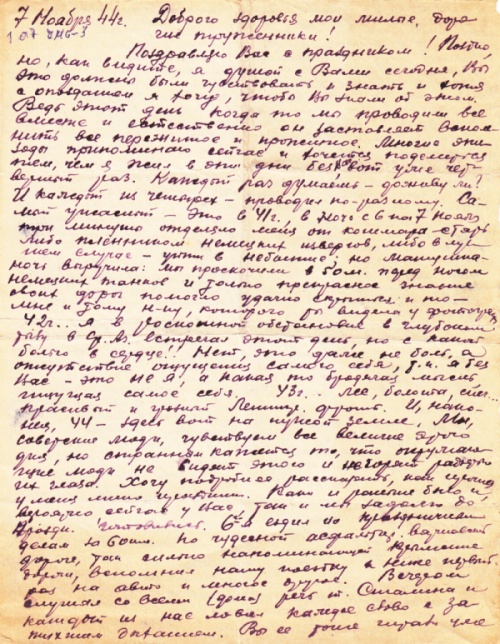 7 Ноября 44 г. Доброго здоровья мои милые, доро-
гие труженики!
Поздравляю Вас с праздником! Поздно,
но, как видите, я душой с Вами сегодня, Вы
это должны были чувствовать и знать и хотя
с опозданием я хочу, чтобы Вы знали об этом.
Ведь этот день когда то мы проводили все
вместе и естественно он заставляет вспом-
нить все пережитое и прожитое. Многие эти
годы припоминаю сейчас и хочется поделиться
тем, чем я жил в эти дни без Вас вот уже чет-
вертый раз. Каждый раз думаешь - доживу ли?
И каждый из четырех - проводил по-разному. Са-
мый ужасный - это в 41 г., в ночь с 6 на 7 ноября
три минуты отделяло меня от кошмара - стать
либо пленником немецких извергов, либо в луч-
шем случае - уйти в небытие; но матушка-
ночь выручила: мы проскочили в 50 м. перед носом
немецких танков и только прекрасное знание
своих дорог помогло удачно скрыться и
мне и тому н-ку, которого ты видела у фотографа
42 г.. я в роскошной обстановке в глубоком
тылу в Ср. Аз. встречал этот день, но с какой
болью в сердце! Нет, это даже не боль, а
отсутствие ощущения самого себя, т.к. я без
Вас - это не я, а какая то бродячая мысль
ищущая самое себя. 43 г.. Лес, болота, снег...
красивый и грозный Ленингр. фронт. И, нако-
нец, 44 - здесь вот на чужой земле, Мы,
советские люди, чувствуем все величие этого
дня, но странным кажется то, что окружаю-
щие люди не видят этого и не горят радостью
их глаза. Хочу подробнее рассказать, как
у меня
вероятно сейчас у Вас, так и мы задолго до
готовились. 6-го ездил по праздничным
делам за 60 км. по чудесной асфальтир.
дороге, так сильно напоминающей Крымские
дороги, вспомнил нашу поездку в
раз на авто и многое другое. Вечером
слушал со всеми (дома) речь т. Сталина и
каждый из нас ловил каждое слово с за-
таенным дыханием. Во все